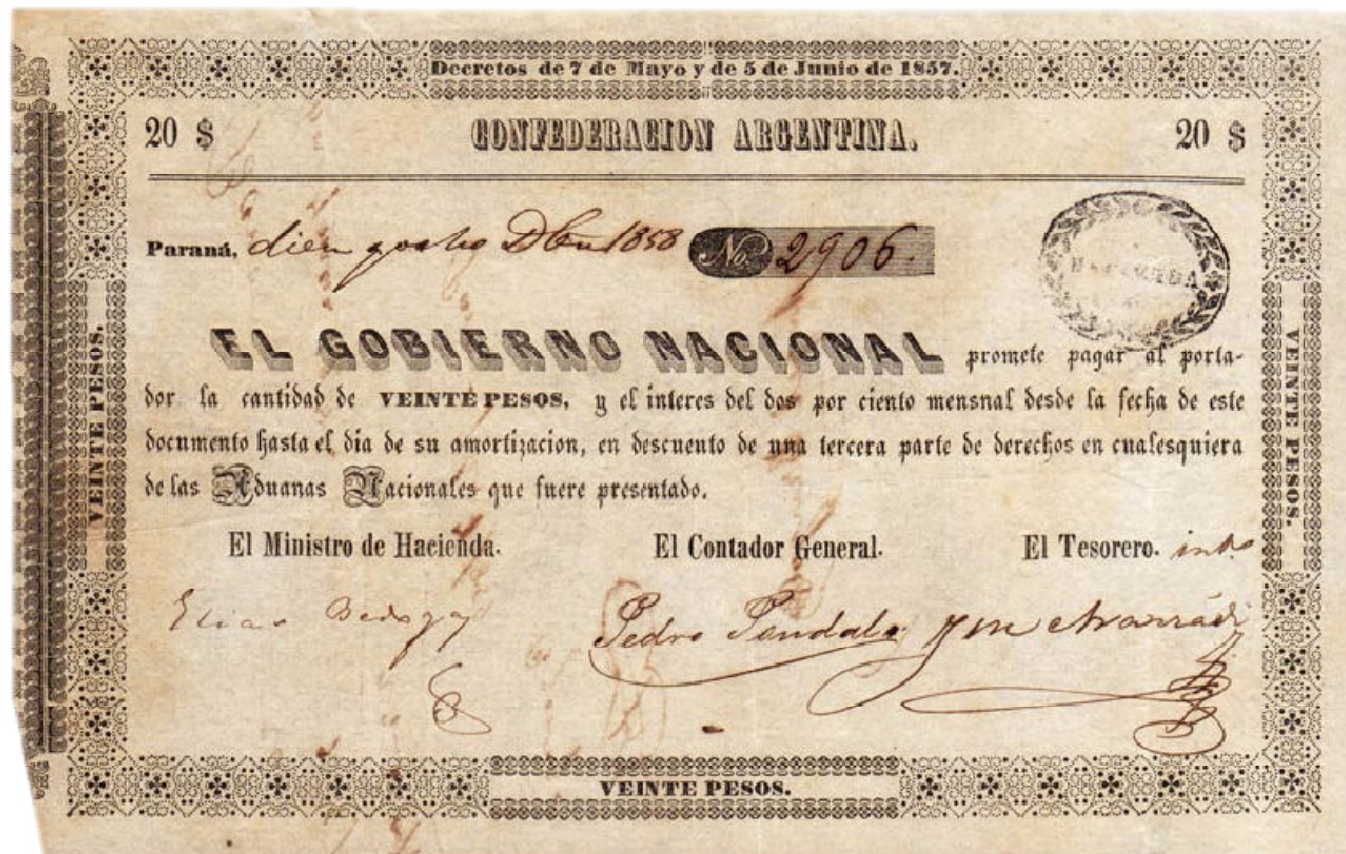 Decretos de 7 de Mayo y de 5 de Junio de 1857.
20 $ CONFEDERACION ARGENTINA. 20 $
Paraná, 1858 No. 2906.
EL GOBIERNO NACIONAL promete pagar al porta-
dor la cantidad de VEINTE PESOS, y el interes del dos por ciento mensnal desde la fecha de este
documento hasta el dia de su amortizacion, en descuento de una tercera parte de derechos en cualesquiera
de las Aduanas Nacionales que fuere presentado.
El Ministro de Hacienda. El Contador General. El Tesorero.
Elias Bedoya Pedro Pondal
VEINTE PESOS.
VEINTE PESOS.
VEINTE PESOS.